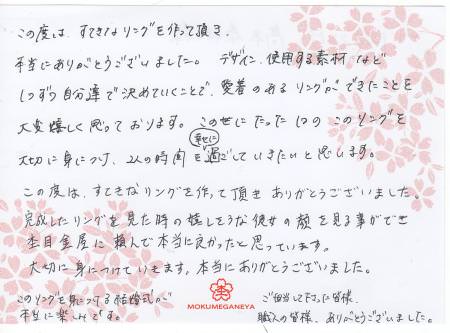 この度は、すてきなリングを作って頂き、
本当にありがとうございました。 デザイン、使用する素材 など
1つずつ自分達で決めていくことで、愛着のあるリングができたことを
大変嬉しく思っております。この世にたった1つの このリングを
大切に身につけ、2人の時間を幸せに過ごしていきたいと思います。
この度は、すてきなリングを作って頂き ありがとうございました。
完成したリングを見た時の嬉しそうな彼女の顔を見る事ができ
杢目金屋に頼んで本当に良かったと思っています。
大切に身につけていきます。本当にありがとうございました。
このリングを身につける結婚式が
本当に楽しみです。
MOKUMEGANEYA
ご担当して下さった皆様、
職人の皆様、ありがとうございました。